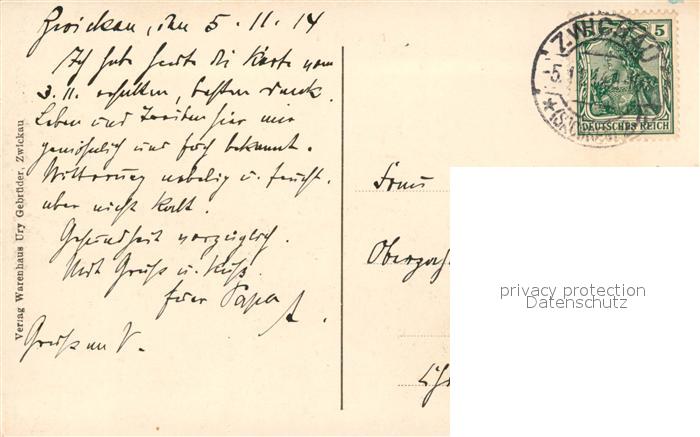 Zwickau, den 5.11.14
Ich habe heute die Karte vom
3.11. erhalten, besten Dank.
Leben und Treiben hier wie
gewöhnlich und Euch bekannt.
Witterung nebelig u. feucht,
aber nicht kalt.
Gesundheit vorzüglich.
Mit Gruß u. Kuß
Euer Papa
Gruß an V.
Verlag Warenhaus Ury Gebrüder, Zwickau
ZWICKAU
-5.11.14
5
DEUTSCHES REICH
Frau
privacy protection
Datenschutz